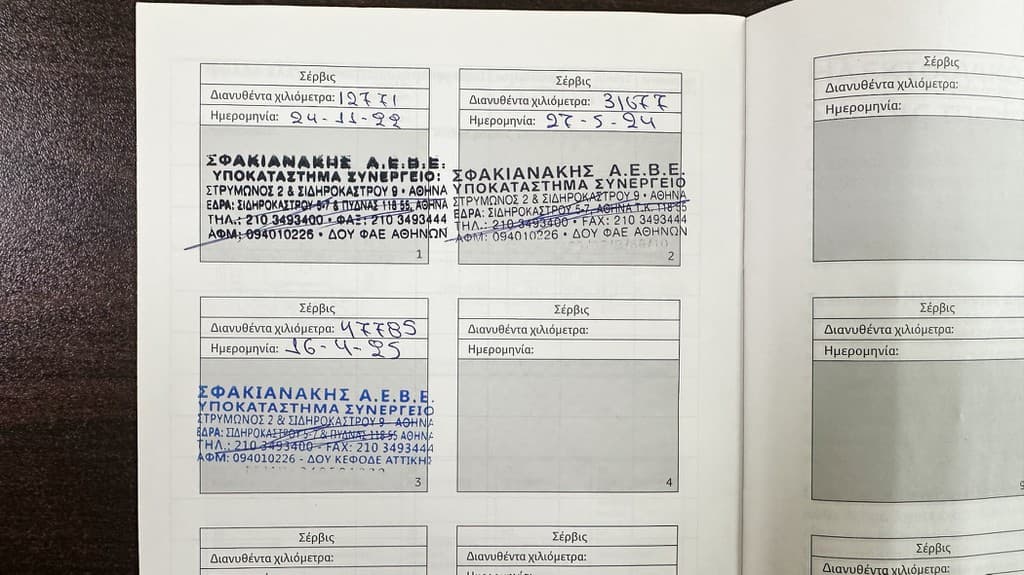 Σέρβις
Διανυθέντα χιλιόμετρα: 12771
Ημερομηνία: 24-11-22
ΣΦΑΚΙΑΝΑΚΗΣ Α.Ε.Β.Ε.
ΥΠΟΚΑΤΑΣΤΗΜΑ ΣΥΝΕΡΓΕΙΟ:
ΣΤΡΥΜΩΝΟΣ 2 & ΣΙΔΗΡΟΚΑΣΤΡΟΥ 9 • ΑΘΗΝΑ
ΕΔΡΑ: ΣΙΔΗΡΟΚΑΣΤΡΟΥ 5-7 & ΠΥΔΝΑΣ 118 55, ΑΘΗΝΑ
ΤΗΛ.: 210 3493400 • ΦΑΞ: 210 3493444
ΑΦΜ: 094010226 • ΔΟΥ ΦΑΕ ΑΘΗΝΩΝ
1
Σέρβις
Διανυθέντα χιλιόμετρα: 31677
Ημερομηνία: 27-5-24
ΣΦΑΚΙΑΝΑΚΗΣ Α.Ε.Β.Ε.
ΥΠΟΚΑΤΑΣΤΗΜΑ ΣΥΝΕΡΓΕΙΟ
ΣΤΡΥΜΩΝΟΣ 2 & ΣΙΔΗΡΟΚΑΣΤΡΟΥ 9 • ΑΘΗΝΑ
ΕΔΡΑ: ΣΙΔΗΡΟΚΑΣΤΡΟΥ 5-7, ΑΘΗΝΑ Τ.Κ. 118 55
ΤΗΛ.: 210 3493400 • FAX: 210 3493444
ΑΦΜ: 094010226 • ΔΟΥ ΦΑΕ ΑΘΗΝΩΝ
2
Σέρβις
Διανυθέντα χιλιόμετρα:
Ημερομηνία:
Σέρβις
Διανυθέντα χιλιόμετρα: 47785
Ημερομηνία: 16-4-25
ΣΦΑΚΙΑΝΑΚΗΣ Α.Ε.Β.Ε.
ΥΠΟΚΑΤΑΣΤΗΜΑ ΣΥΝΕΡΓΕΙΟ
ΣΤΡΥΜΩΝΟΣ 2 & ΣΙΔΗΡΟΚΑΣΤΡΟΥ 9 ΑΘΗΝΑ
ΕΔΡΑ: ΣΙΔΗΡΟΚΑΣΤΡΟΥ 5-7 & ΠΥΔΝΑΣ 118 55 ΑΘΗΝΑ
ΤΗΛ.: 210 3493400 - FAX: 210 3493444
ΑΦΜ: 094010226 - ΔΟΥ ΚΕΦΟΔΕ ΑΤΤΙΚΗΣ
3
Σέρβις
Διανυθέντα χιλιόμετρα:
Ημερομηνία:
4
Σέρβις
Διανυθέντα χιλιόμετρα:
Ημερομηνία:
9
Σέρβις
Διανυθέντα χιλιόμετρα:
Σέρβις
Διανυθέντα χιλιόμετρα:
Σέρβις
Διανυθέντα χιλιόμετρα: